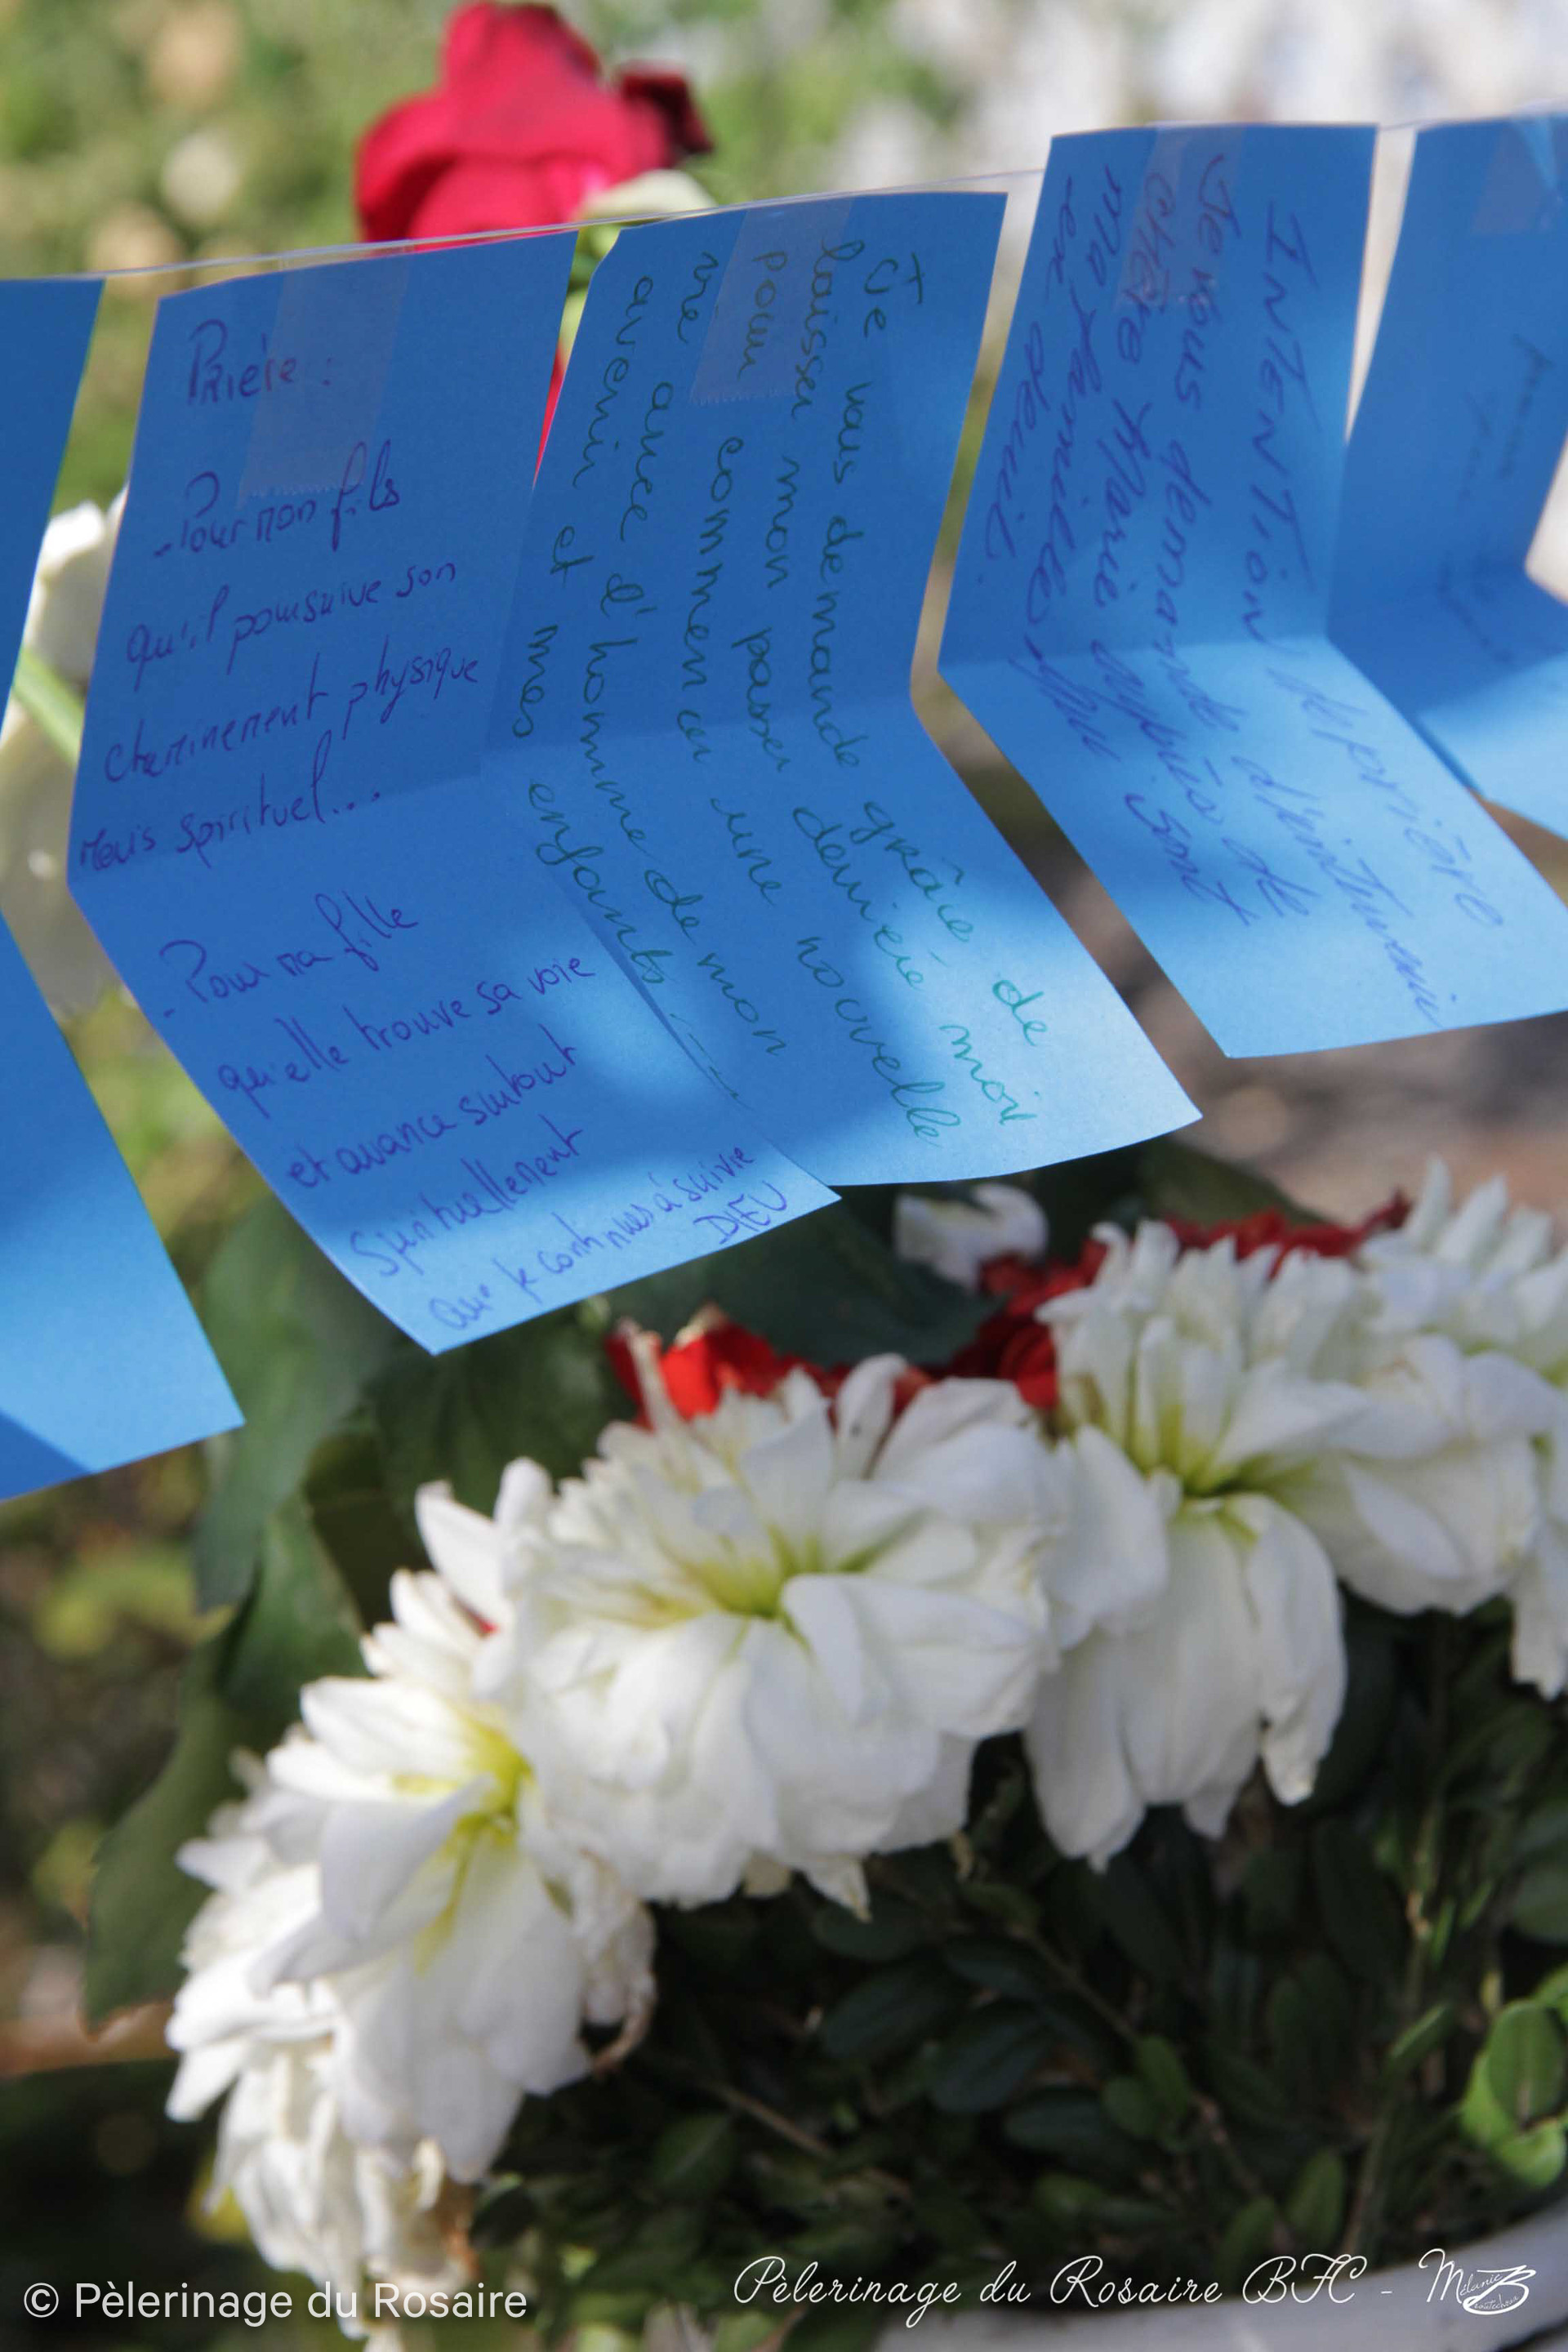 Prière :
- Pour mon fils
qu'il poursuive son
cheminement physique
mais spirituel...
- Pour ma fille
qu'elle trouve sa voie
et avance surtout
spirituellement
que je continues à suivre
DIEU
Je vous demande grâce de
laisser mon passer derrière moi
pour commencer une nouvelle
vie avec d'homme de mon
avenir et mes enfants
INTENTION de prière
Je vous demande d'intervenir
chère Marie auprès de
ma famille qui sont
en deuil.
© Pèlerinage du Rosaire
Pèlerinage du Rosaire BFC -